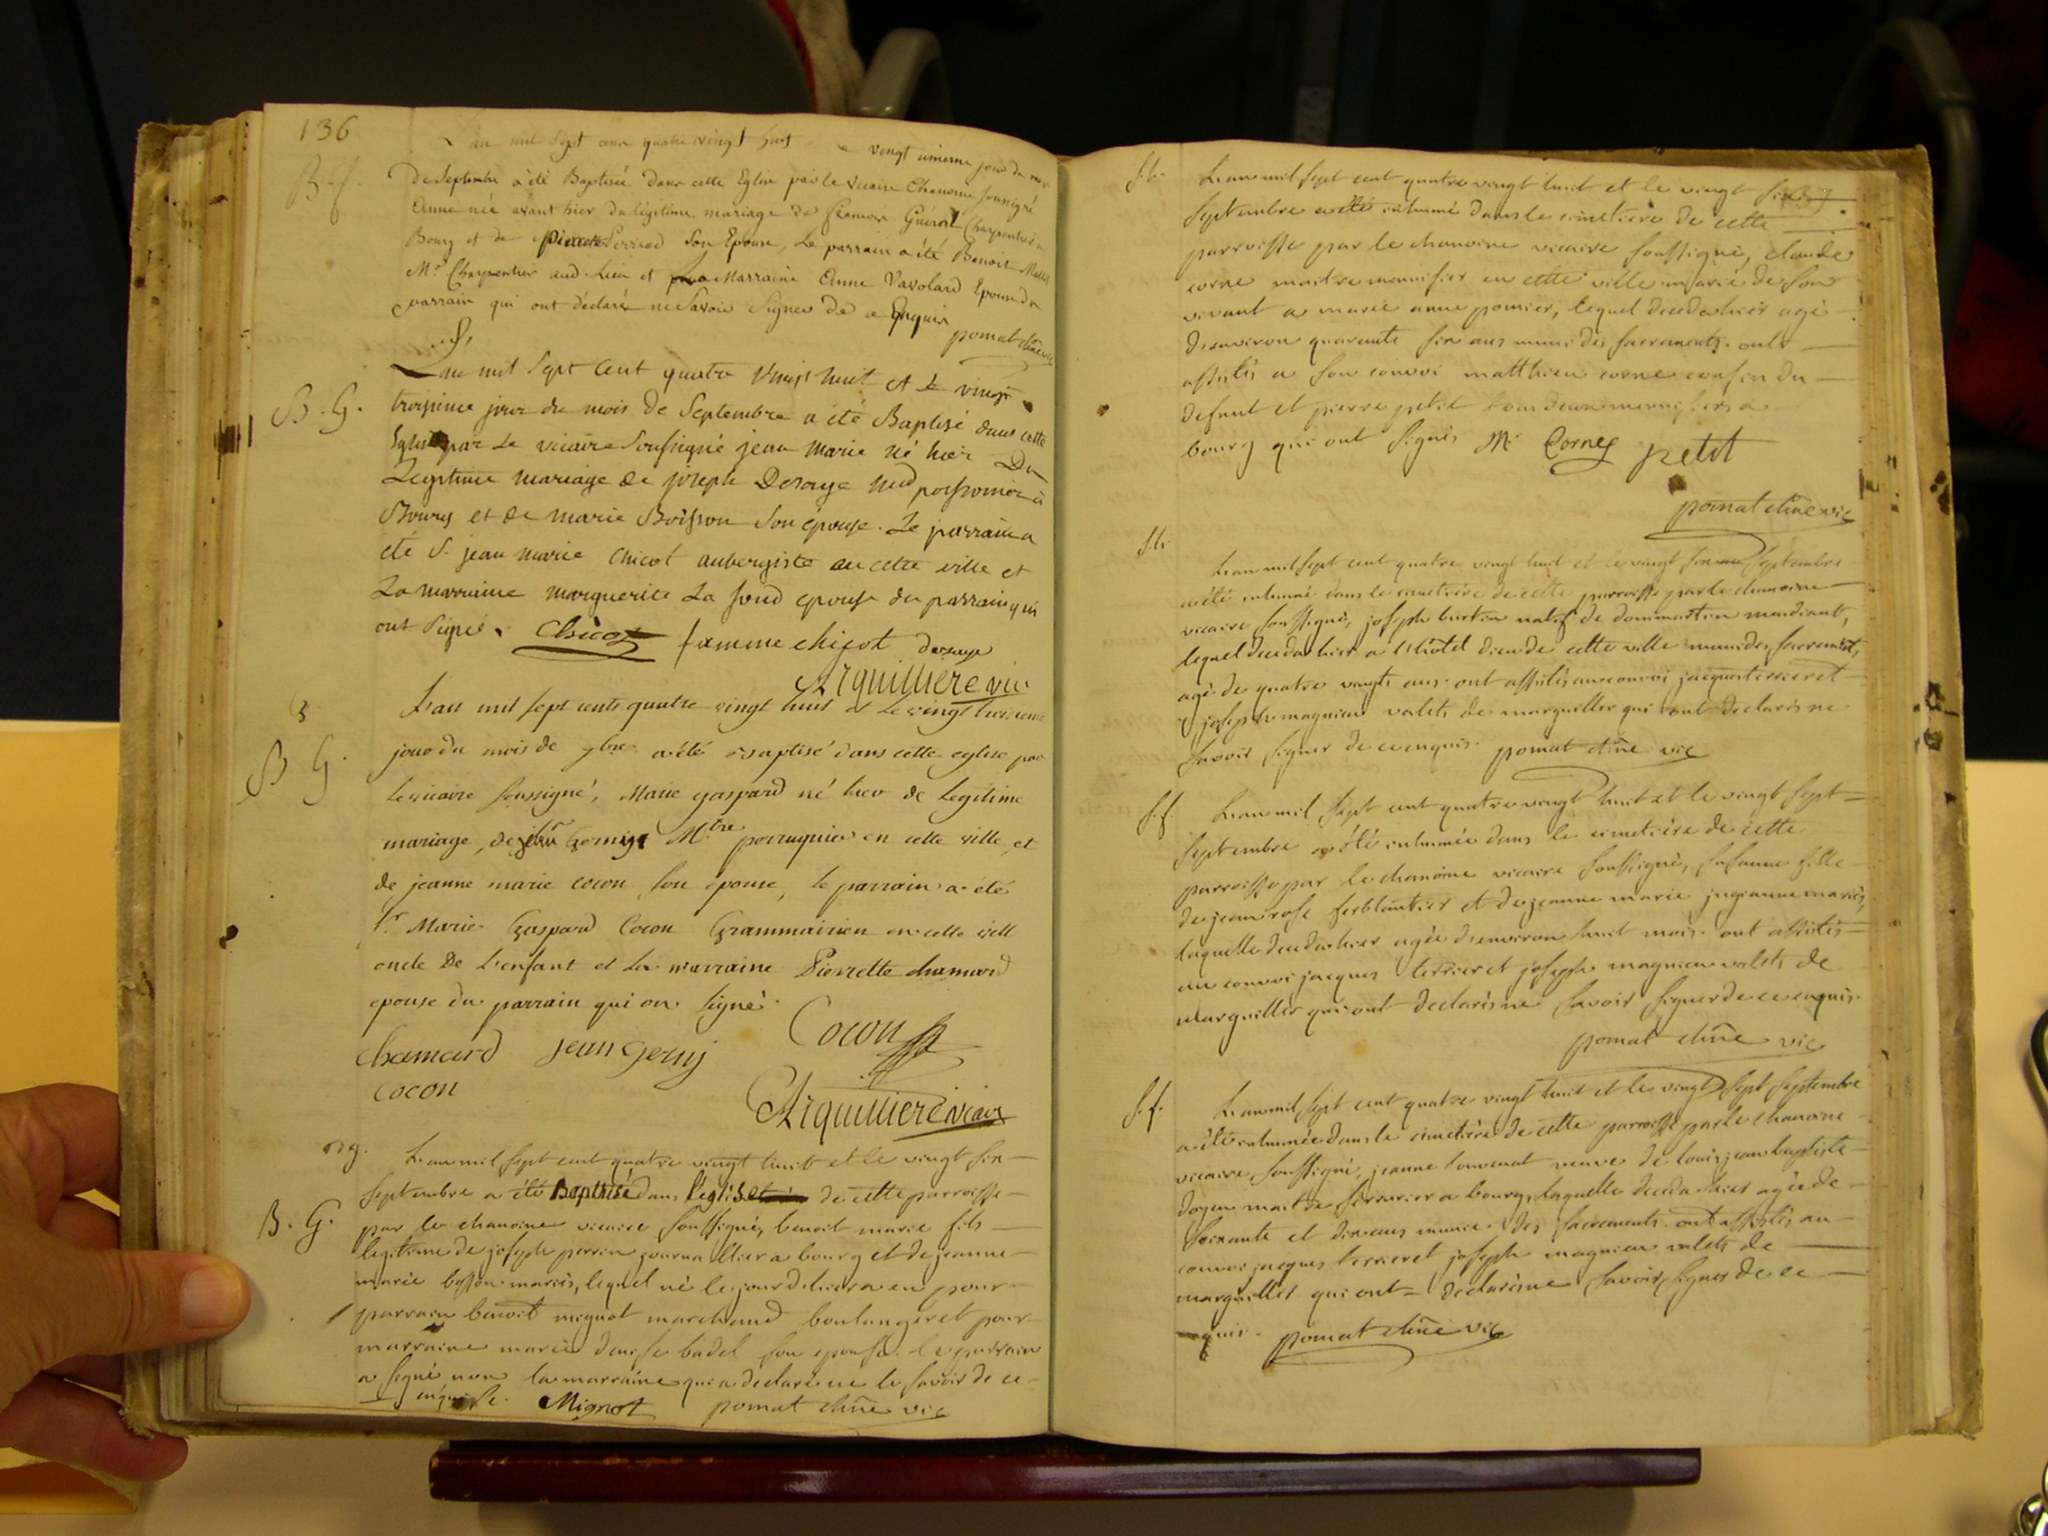 136
L'an mil sept cent quatre vingt huit vingt unieme jour du mois
B. f.
De Septembre a été Baptisée dans cette Eglise par le vicaire Chanoine soussigné
Anne née avant hier du légitime mariage de Guérin Charpentier a
Bourg et de pierrette Perriod Son Epouse, Le parrain a été Benoit
Mr Charpentier aud. Lieu et La Marraine Anne Vavolard Epouse du
parrain qui ont déclaré ne Savoir Signer de ce Enquis
pomat chne vic
L'an mil sept cent quatre vingt huit et le vingt
B. G.
troisieme jour du mois de Septembre a été Baptisé dans cette
Eglise par le vicaire Soussigné jean marie né hier Du
Legitime mariage de joseph Desaye md poissonier à
Bourg et de marie Boisson Son épouse. Le parrain a
été S. jean marie chicot aubergiste en cette ville et
La marraine marguerite La fond epouse du parrain qui
ont signé. Chicot famme chicot desaye
Arquilliere vic.
3
L'an mil sept cents quatre vingt huit et le vingt troisieme
B G.
jour du mois de 7bre a été Baptisé dans cette eglise par
le vicaire soussigné, Marie gaspard né hier de legitime
mariage, de jean Gernij Mtre perruquier en cette ville, et
de jeanne marie cocon son epouse, le parrain a été
Sr Marie Gaspard Cocon Grammairien en cette vill
oncle De L'enfant et La marraine Pierrette chamard
epouse du parrain qui on signé.
Cocon
chamard jean Gernij
cocon
Arquilliere vicaire
L'an mil sept cent quatre vingt huit et le vingt six
Septembre a été Baptisé dans l'église de cette parroisse
B. G.
par le chanoine vicaire soussigné, benoit marie fils
legitime de joseph perrin journallier a bourg et de jeanne
marie bosson mariés, lequel né le jour d'hier a eu pour
parrain benoit mignot marchand boulanger et pour
marraine marie denise badel son epouse. le parrain
a signé non la marraine qui a declaré ne le savoir de ce
enquise. Mignot pomat chne vic
S. G.
L'an mil sept cent quatre vingt huit et le vingt six
Septembre a été inhumé dans le cimetiere de cette
parroisse par le chanoine vicaire soussigné, claude
corne maitre menusier en cette ville marié de son
vivant a marie anne pomier, lequel deceda hier agé
d'environ quarante six ans muni des sacrements. ont
assistés a son convoi matthieu corne cousin du
defunt et pierre petit tous deux menusiers a
bourg qui ont signés M. Corne petit
pomat chne vic
S. G.
L'an mil sept cent quatre vingt huit et le vingt six Septembre
a été inhumé dans le cimetiere de cette parroisse par le chanoine
vicaire soussigné, joseph burtin natif de dommartin mandiant,
lequel deceda hier a l'hotel dieu de cette ville muni des sacrements,
agé de quatre vingts ans. ont assistés au convoi jacques terrier et
joseph magnien valets de marguillier qui ont declarés ne
savoir signer de ce enquis. pomat chne vic
S. f.
L'an mil sept cent quatre vingt huit et le vingt sept
Septembre a été inhumée dans le cimetiere de cette
parroisse par le chanoine vicaire soussigné, susanne fille
de jean rose ferblantier et de jeanne marie jugeanne mariés,
laquelle deceda hier agée d'environ huit mois. ont assistés
au convoi jacques terrier et joseph magnien valets de
marguillier qui ont declarés ne savoir signer de ce enquis.
pomat chne vic
S. f.
L'an mil sept cent quatre vingt huit et le vingt sept Septembre
a été inhumée dans le cimetiere de cette parroisse par le chanoine
vicaire soussigné, jeanne veuve de louis jean baptiste
doyen maitre serrurier a bourg, laquelle deceda hier agée de
soixante et dix ans munie des sacrements. ont assistés au
convoi jacques terrier et joseph magnien valets de
marguillier qui ont declarés ne savoir signer de ce
enquis. pomat chne vic